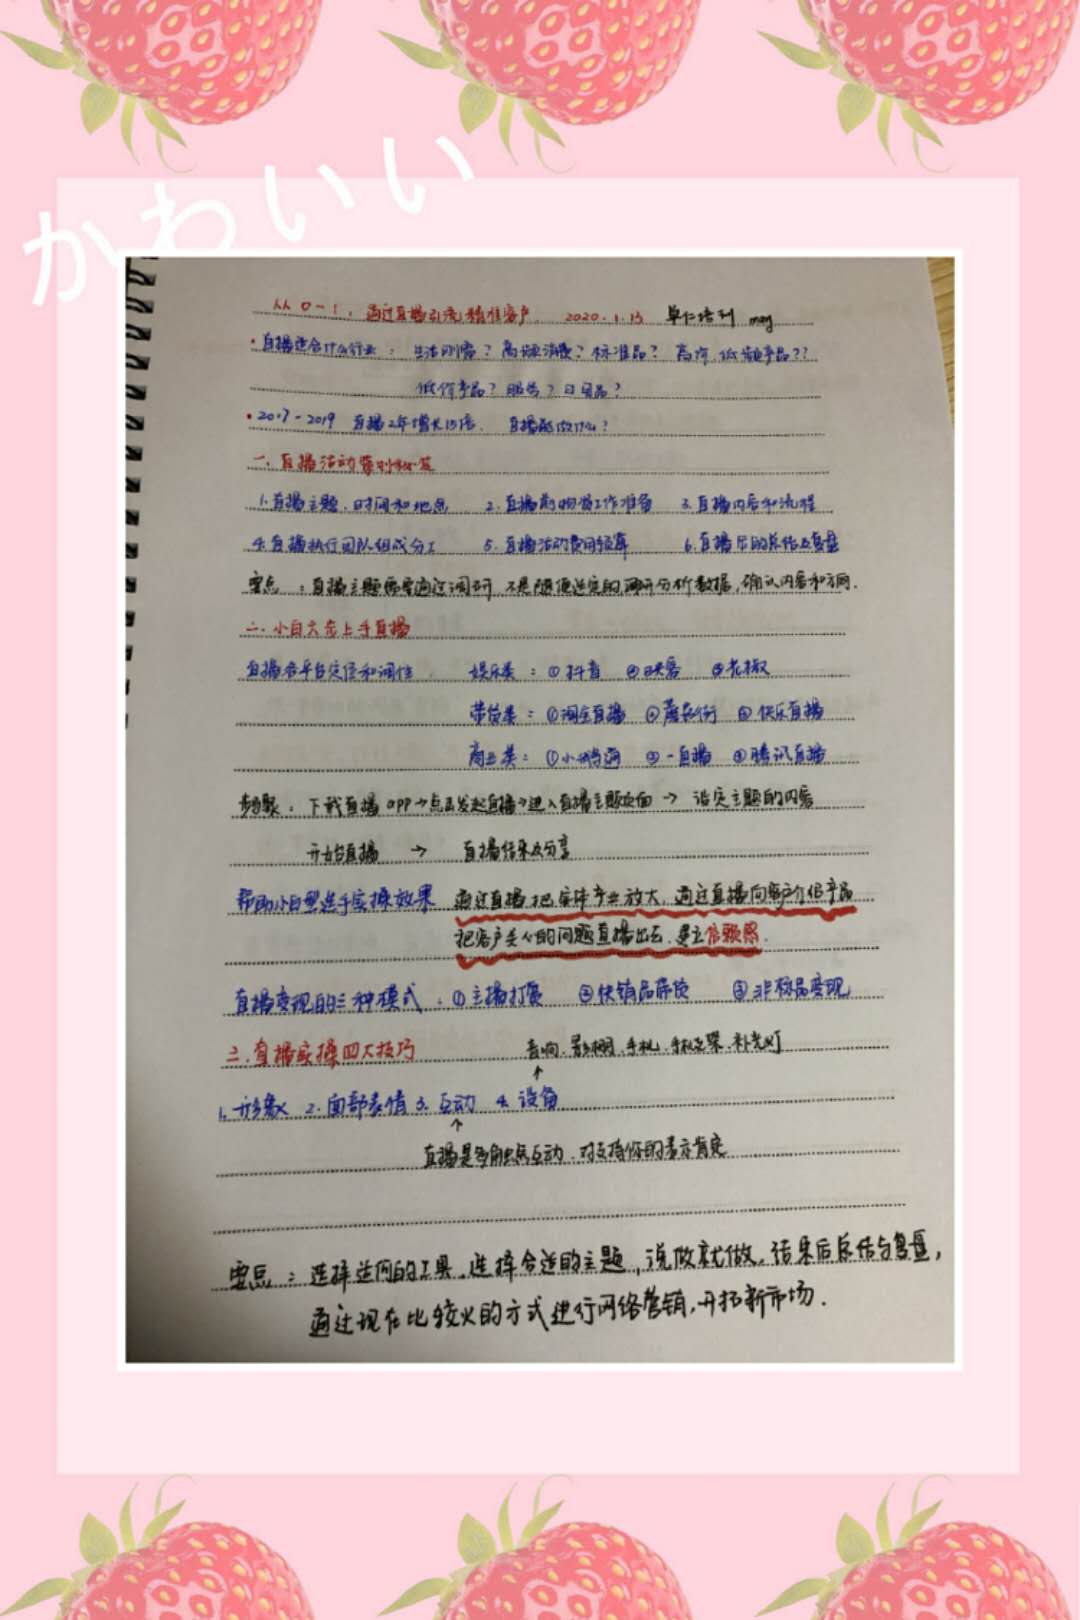 かわいい
从0-1，通过直播引流精准客户 2020.1.13 单仁培训 may
·直播适合什么行业：生活刚需？高频消费？标准品？高价、低频产品？？
低价产品？服务？日用品？
·2017-2019 直播2年增长15倍． 直播能做什么？
一、直播活动策划
1.直播主题、时间和地点 2.直播前物资工作准备 3.直播内容和流程
4.直播执行团队组成分工 5.直播活动费用预算 6.直播后的总结及复盘
要点：直播主题需要通过调研，不是随便选定的，调研分析数据，确认内容和方向．
二、小白六步上手直播
直播各平台定位和调性 娱乐类：①抖音 ②映客 ③花椒
带货类：①淘宝直播 ②蘑菇街 ③快乐直播
商业类：①小鹅通 ②一直播 ③腾讯直播
步骤：下载直播app→点击发起直播→进入直播主题页面→设定主题的内容
开始直播 → 直播结束及分享
帮助小白型选手实操效果 通过直播把实体产业放大，通过直播向客户介绍产品
把客户关心的问题直播出去，建立信赖感．
直播变现的三种模式：①主播打赏 ②快销品带货 ③非标品变现
三、直播实操四大技巧 音响、手机、手机支架、补光灯
1.形象 2.面部表情 3.互动 4.设备
直播是多角度互动，对支持你的表示肯定
要点：选择适用的工具，选择合适的主题，说做就做，结束后总结与复盘，
通过现在比较火的方式进行网络营销，开拓新市场．